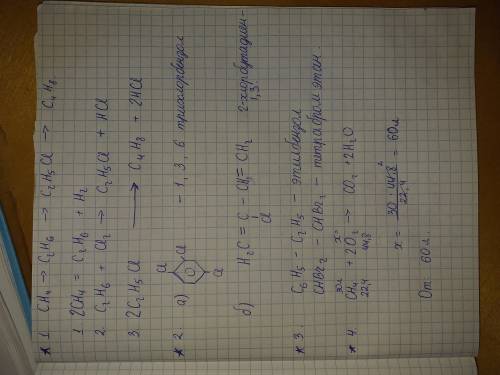 * 1. CH₄ → C₂H₆ → C₂H₅Cl → C₄H₈
1 2CH₄ = C₂H₆ + H₂
2. C₂H₆ + Cl₂ → C₂H₅Cl + HCl
3. 2C₂H₅Cl ⟶ C₄H₈ + 2HCl
* 2. а) Cl Cl Cl - 1, 3, 6 трихлорбензол
б) H₂C = C - CH = CH₂ 2-хлорбутадиен-
Cl 1,3.
* 3. C₆H₅ - C₂H₅ - этилбензол
CHBr₂ - CHBr₂ - тетрабромэтан.
30л x
* 4. CH₄ + 2O₂ → CO₂ + 2H₂O
22,4 44,8
x = 30 · 44,8 / 22,4 = 60л
От 60л.